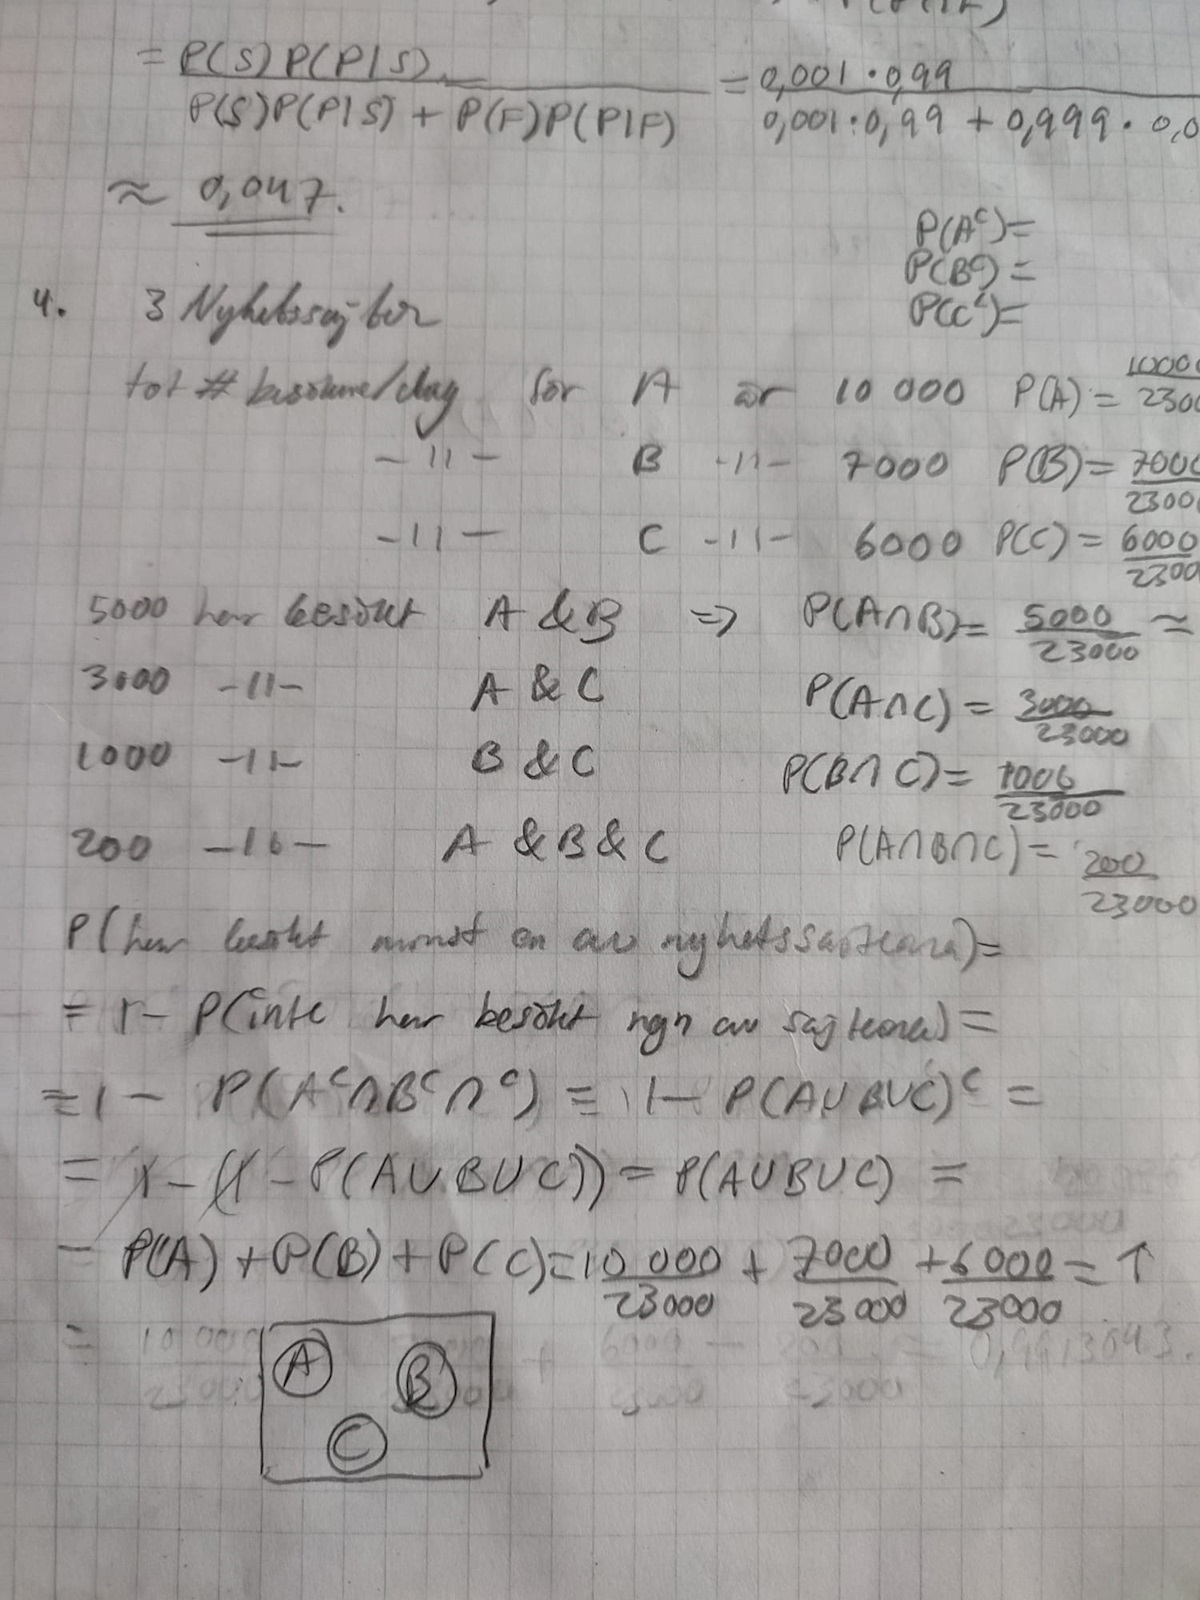 = P(S)P(P|S) = 0,001·0,99
P(S)P(P|S) + P(F)P(P|F) 0,001·0,99 + 0,999·0,0
≈ 0,047.
P(Aᶜ)=
P(Bᶜ)=
P(Cᶜ)=
4. 3 Nyhetssajter
tot # besökare/dag för A är 10 000 P(A) = 10000/2300
-11- B -11- 7000 P(B) = 7000/2300
-11- C -11- 6000 P(C) = 6000/2300
5000 har besökt A & B => P(A∩B) = 5000/23000 ≈
3000 -11- A & C P(A∩C) = 3000/23000
1000 -11- B & C P(B∩C) = 1000/23000
200 -11- A & B & C P(A∩B∩C) = 200/23000
P(har besökt minst en av nyhetssajterna) =
= 1 - P(inte har besökt ngn av sajterna) =
= 1 - P(Aᶜ∩Bᶜ∩ᶜ) = 1 - P(A∪B∪C)ᶜ =
= 1 - (1 - P(A∪B∪C)) = P(A∪B∪C) =
= P(A) + P(B) + P(C) = 10 000/23000 + 7000/23000 + 6000/23000 = 1
=
A B
C